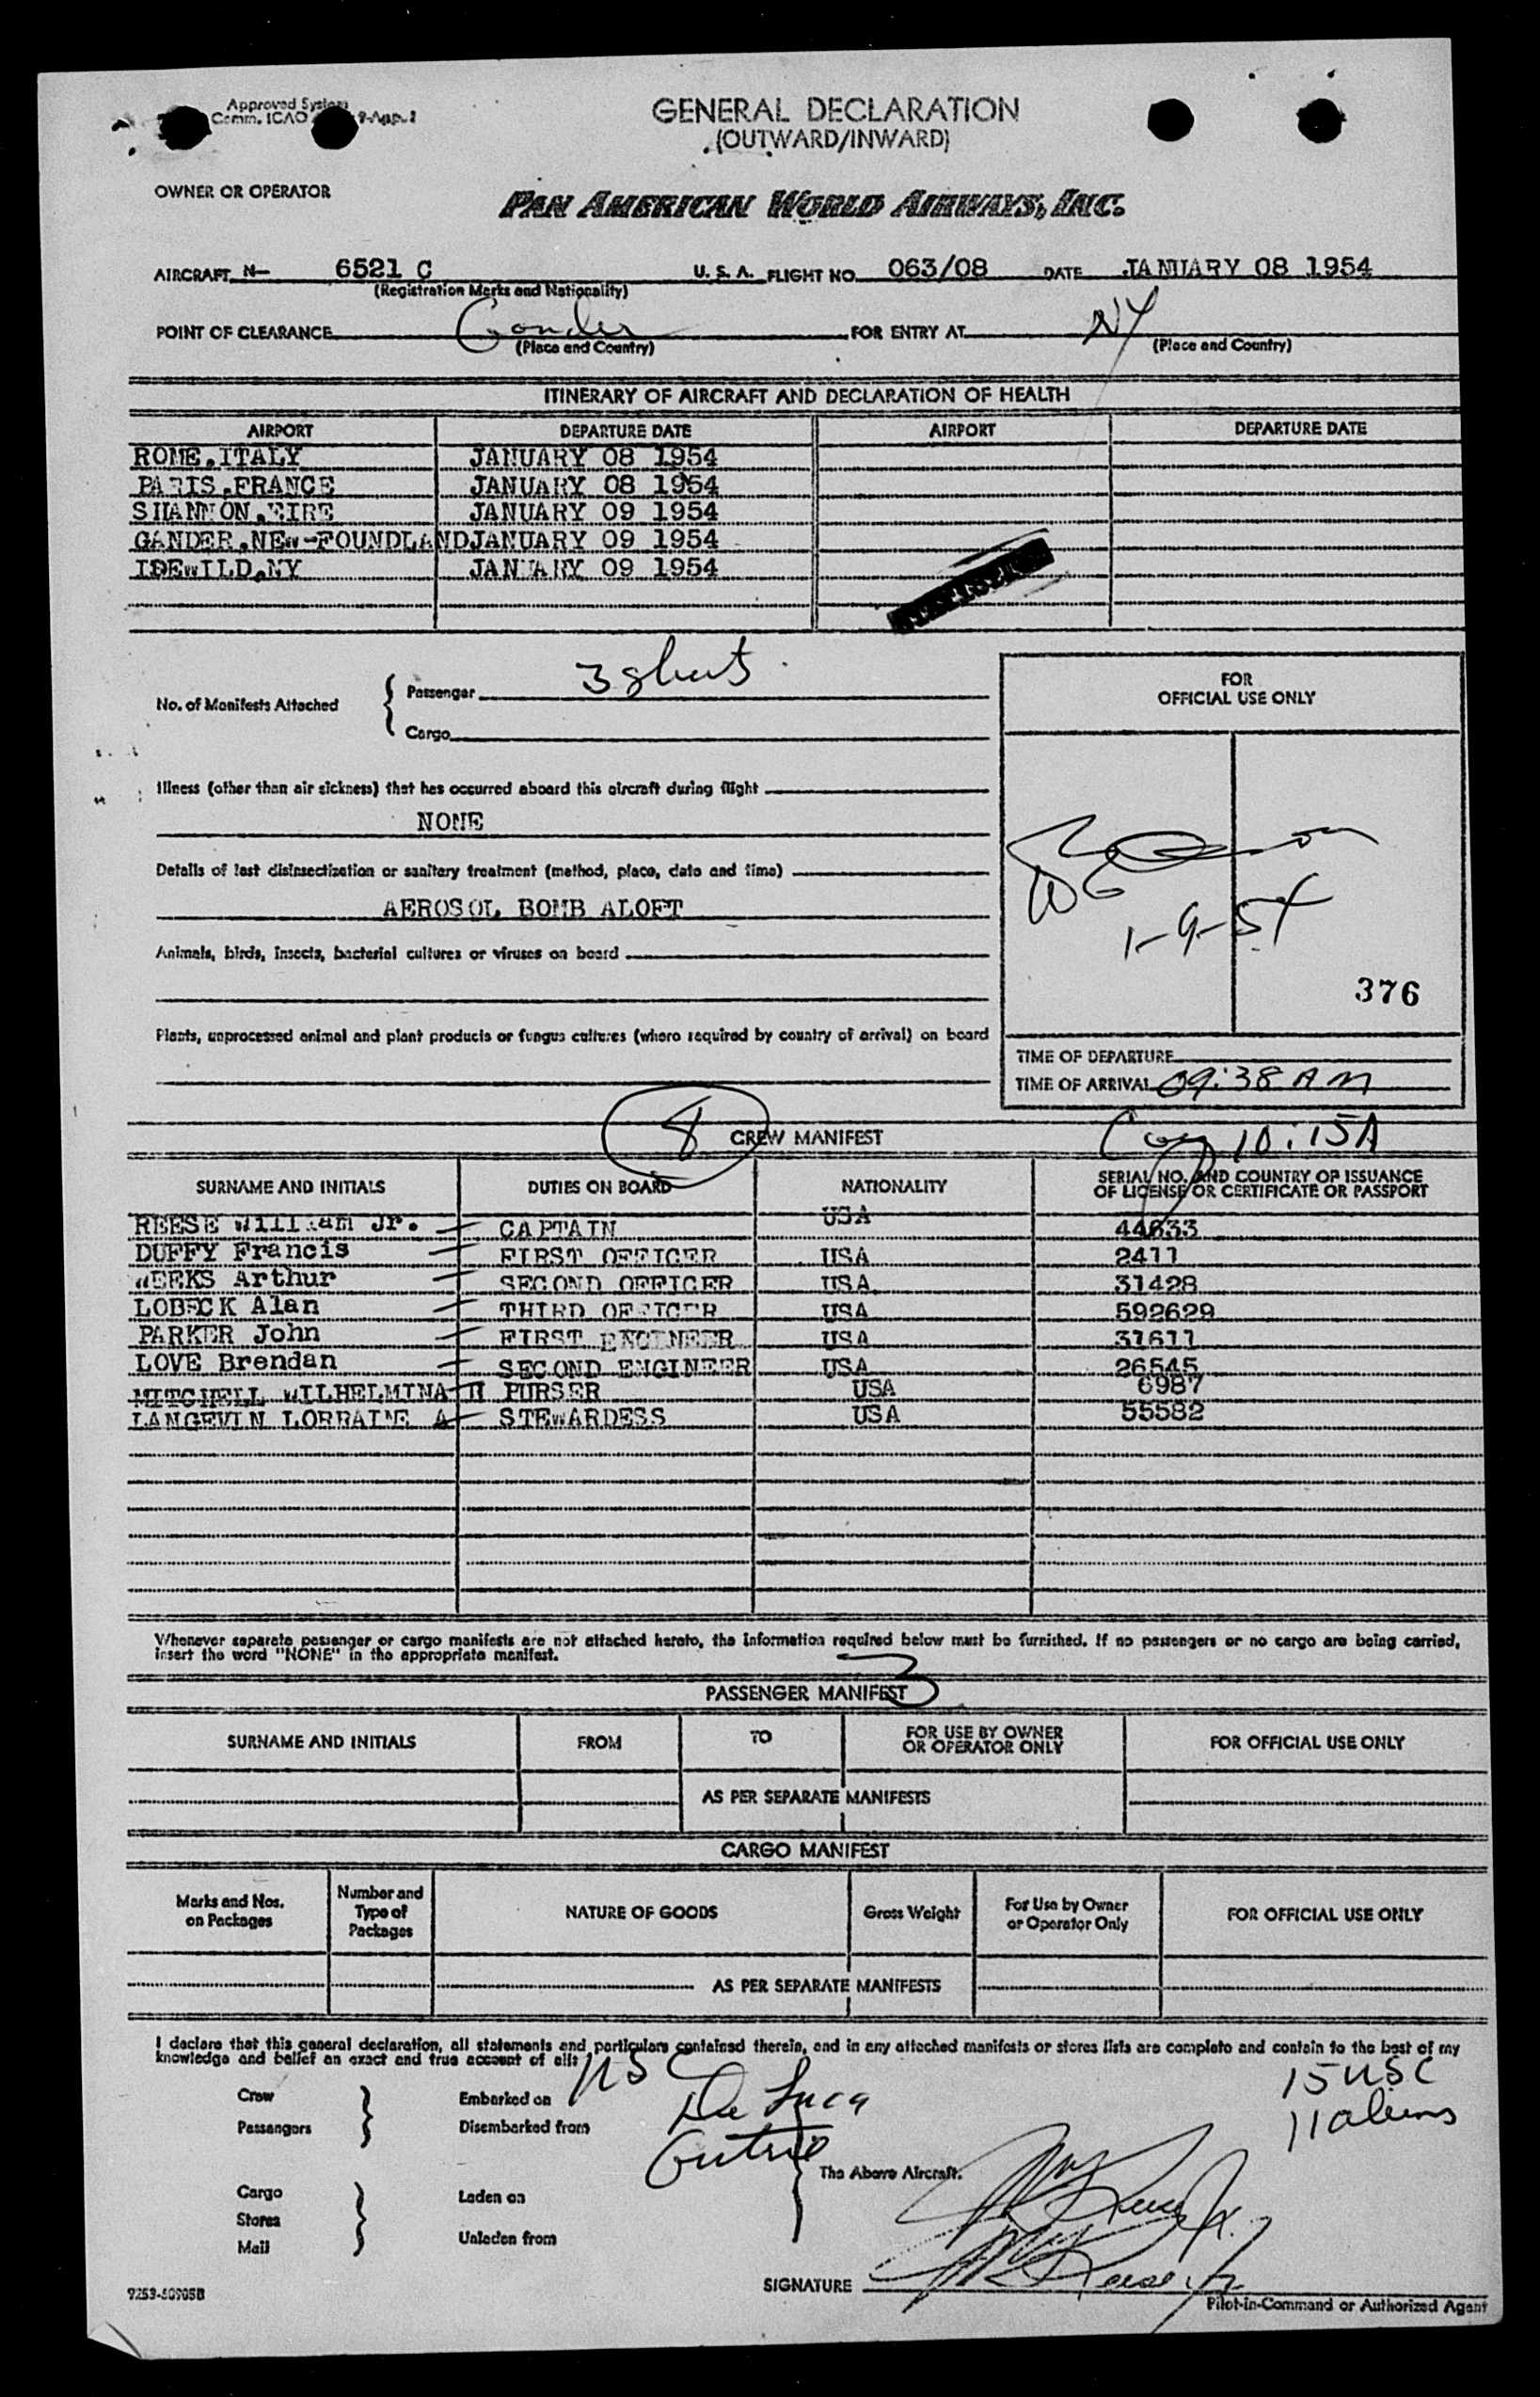 Approved System
Comm. ICAO 9-App. 1
GENERAL DECLARATION
(OUTWARD/INWARD)
OWNER OR OPERATOR
PAN AMERICAN WORLD AIRWAYS, INC.
AIRCRAFT N- 6521 C U. S. A. FLIGHT NO. 063/08 DATE JANUARY 08 1954
(Registration Marks and Nationality)
POINT OF CLEARANCE Gander FOR ENTRY AT NY
(Place and Country) (Place and Country)
ITINERARY OF AIRCRAFT AND DECLARATION OF HEALTH
AIRPORT DEPARTURE DATE AIRPORT DEPARTURE DATE
ROME.ITALY JANUARY 08 1954
PARIS.FRANCE JANUARY 08 1954
SHANNON.EIRE JANUARY 09 1954
GANDER.NEW-FOUNDLAND JANUARY 09 1954
IDEWILD.NY JANUARY 09 1954
No. of Manifests Attached
Passenger 3 sheets
Cargo
FOR
OFFICIAL USE ONLY
Illness (other than air sickness) that has occurred aboard this aircraft during flight
NONE
Details of last disinsectization or sanitary treatment (method, place, date and time)
AEROSOL BOMB ALOFT
Animals, birds, insects, bacterial cultures or viruses on board
1-9-54
376
Plants, unprocessed animal and plant products or fungus cultures (where required by country of arrival) on board
TIME OF DEPARTURE
TIME OF ARRIVAL 09:38 AM
8 CREW MANIFEST
10:15A
SURNAME AND INITIALS DUTIES ON BOARD NATIONALITY SERIAL NO. AND COUNTRY OF ISSUANCE
OF LICENSE OR CERTIFICATE OR PASSPORT
REESE William Jr. CAPTAIN USA 44633
DUFFY Francis FIRST OFFICER USA 2411
WEEKS Arthur SECOND OFFICER USA 31428
LOBECK Alan THIRD OFFICER USA 592629
PARKER John FIRST ENGINEER USA 31611
LOVE Brendan SECOND ENGINEER USA 26545
MITCHELL WILHELMINA H PURSER USA 6987
LANGEVIN LORRAINE A STEWARDESS USA 55582
Whenever separate passenger or cargo manifests are not attached hereto, the information required below must be furnished. If no passengers or no cargo are being carried,
insert the word "NONE" in the appropriate manifest.
PASSENGER MANIFEST 3
SURNAME AND INITIALS FROM TO FOR USE BY OWNER
OR OPERATOR ONLY FOR OFFICIAL USE ONLY
AS PER SEPARATE MANIFESTS
CARGO MANIFEST
Marks and Nos.
on Packages
Number and
Type of
Packages
NATURE OF GOODS
Gross Weight
For Use by Owner
or Operator Only
FOR OFFICIAL USE ONLY
AS PER SEPARATE MANIFESTS
I declare that this general declaration, all statements and particulars contained therein, and in any attached manifests or stores lists are complete and contain to the best of my
knowledge and belief an exact and true account of all:
Crew Embarked on De Luca 15 USC
Passengers Disembarked from 11 aliens
The Above Aircraft.
Cargo Laden on
Stores
Mail Unladen from
SIGNATURE
9253-50905B
Pilot-in-Command or Authorized Agent